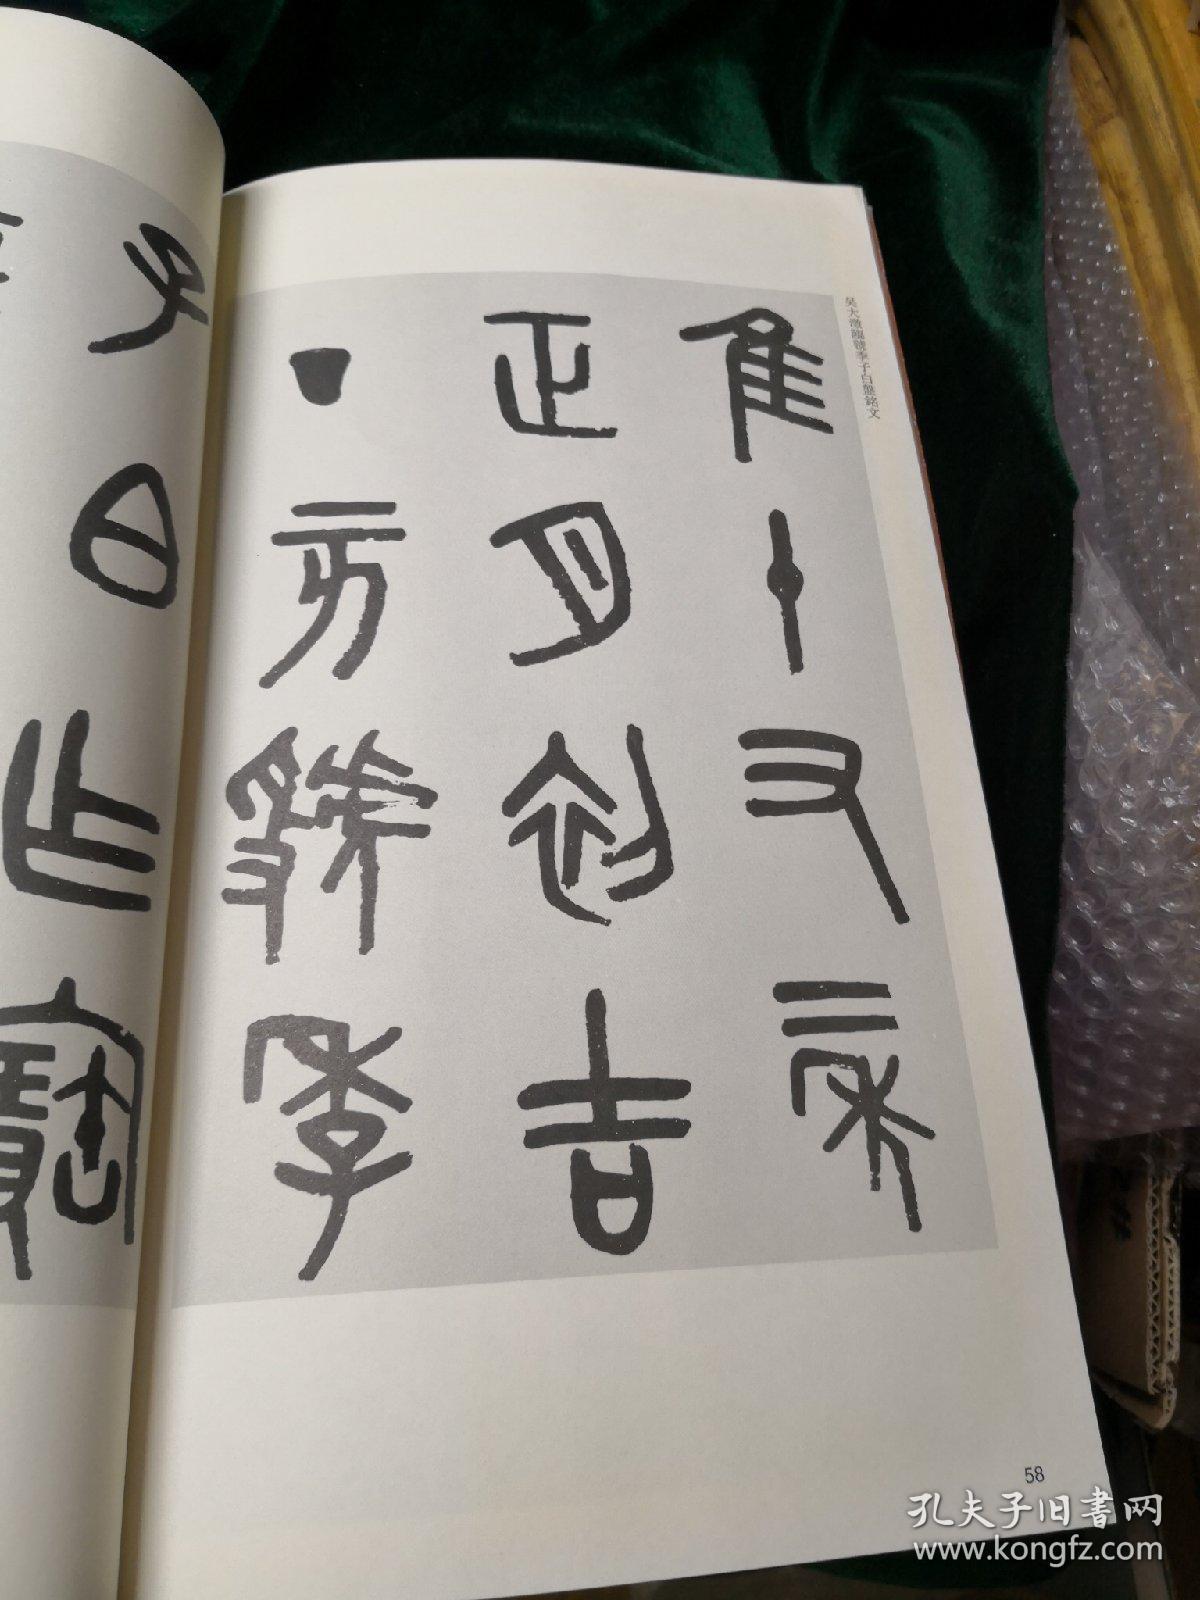 吳大澂臨虢季子白盤銘文
隹十又二年
正月初吉
丁亥虢季
子白乍寶
58
孔夫子旧书网
www.kongfz.com